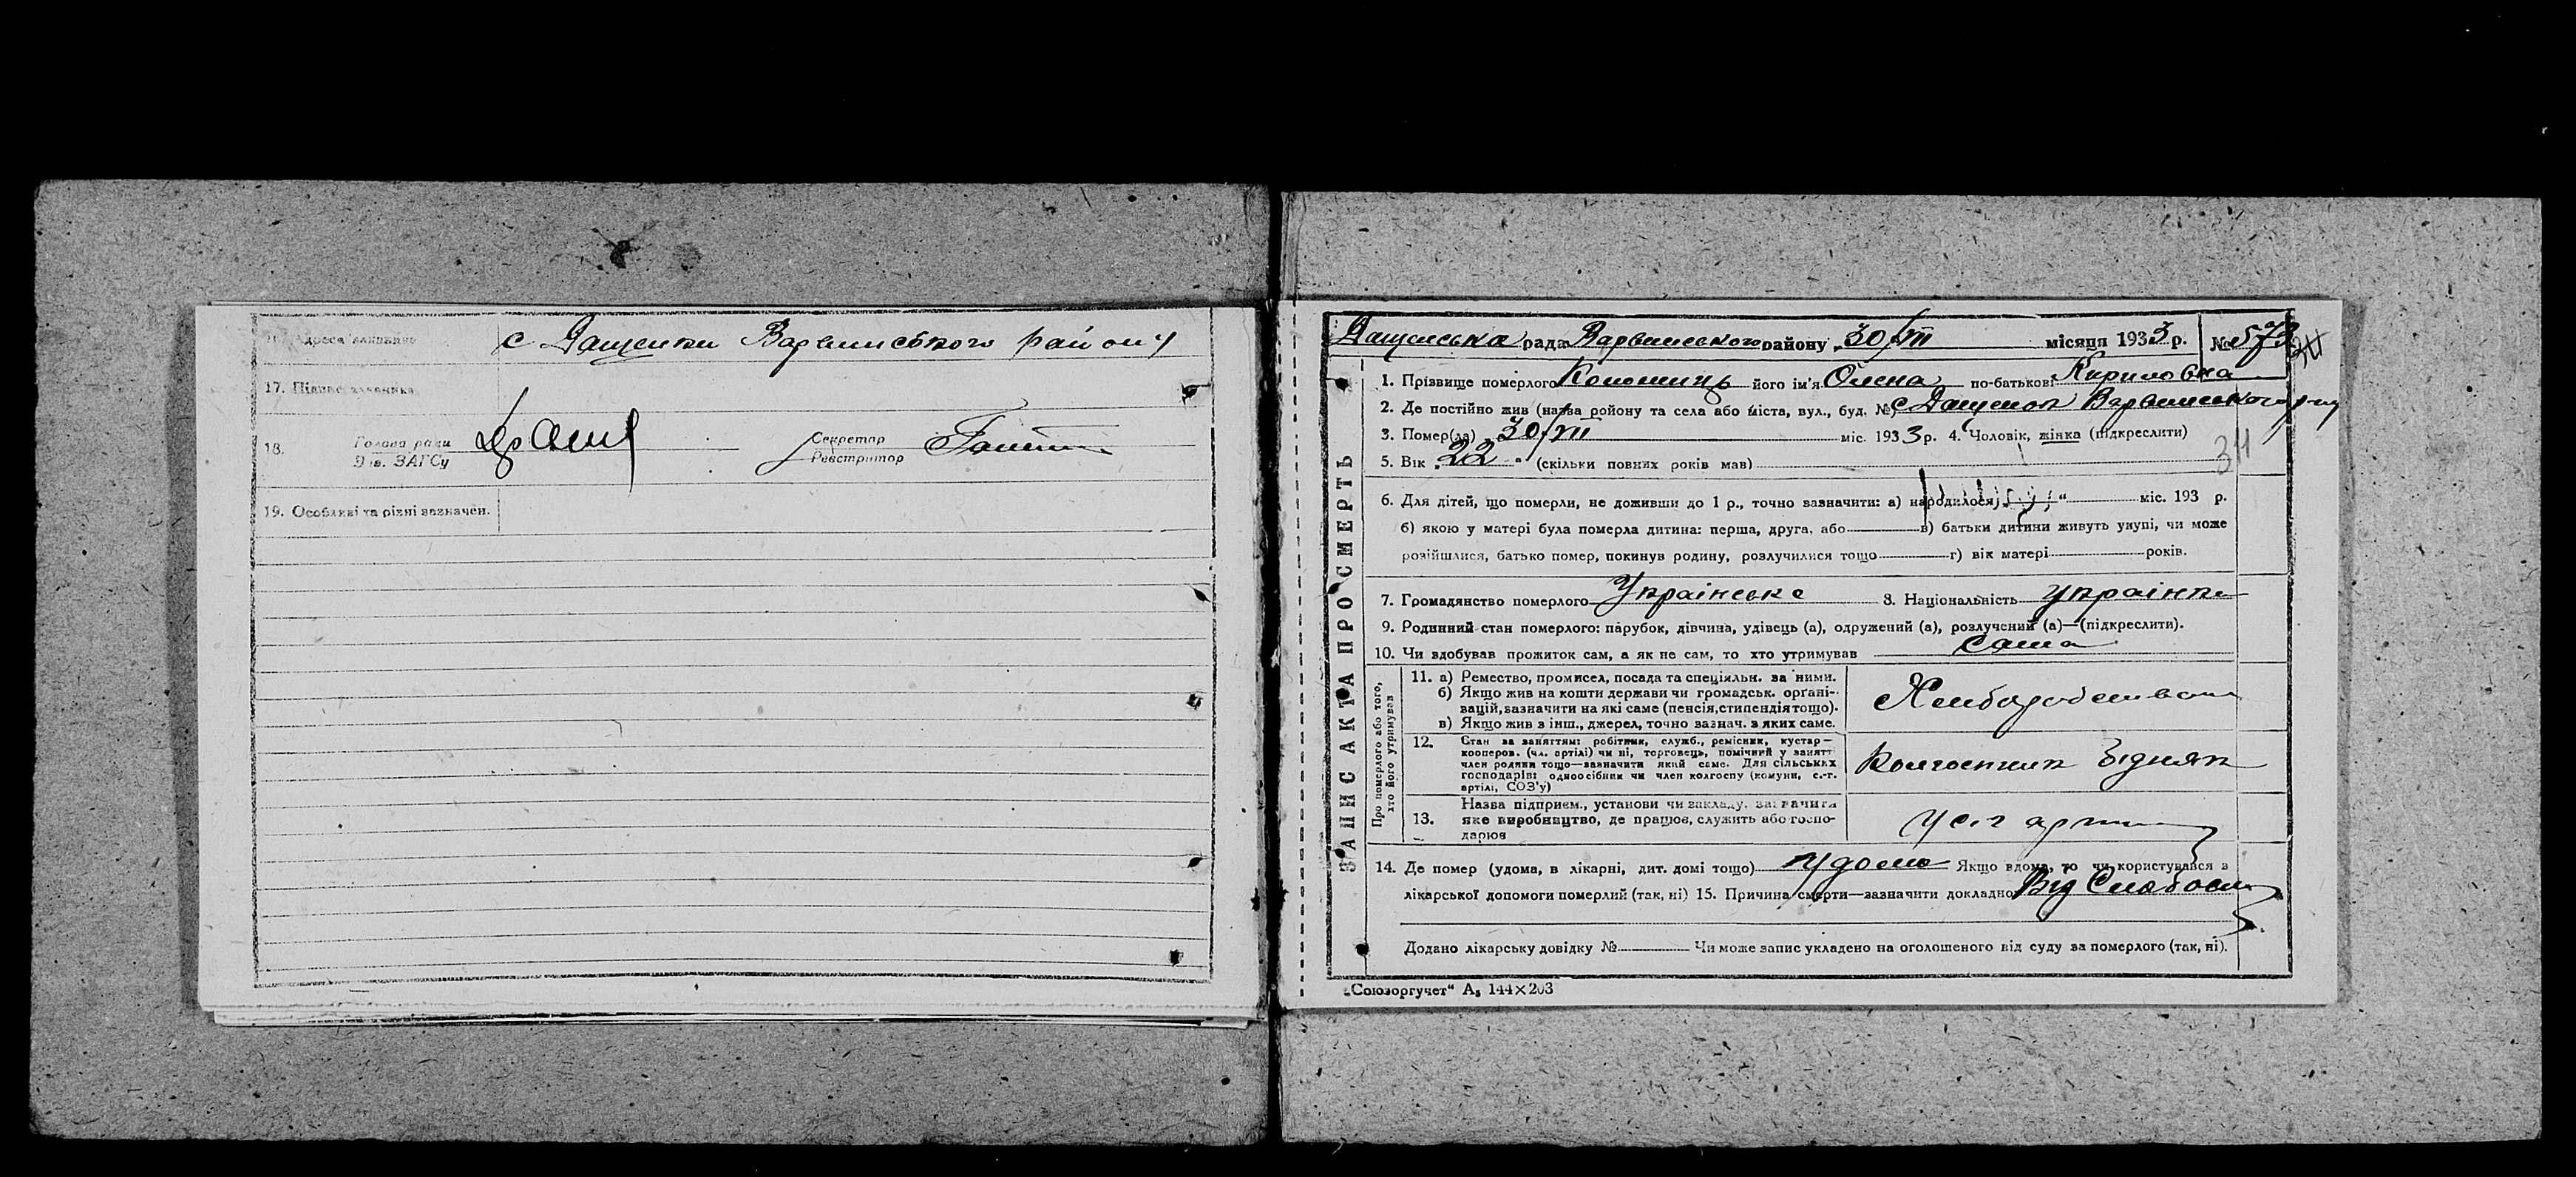 Адреса заявника с Дащенки Варвинського району
17. Підпис заявника
18. Голова ради Секретар
Зав. ЗАГСу Реєстратор
19. Особливі та різні зазначен.
Дащенська рада Варвинського району „30/VII місяця 1933 р. № 573
1. Прізвище померлого Коломиць його ім'я Олена по-батькові Кириловна
2. Де постійно жив (назва району та села або міста, вул., буд. № с Дащенки Варвинського р-ну
3. Помер(ла) „30/VII міс. 1933 р. 4. Чоловік, жінка (підкреслити)
311
5. Вік „22" (скільки повних років мав)
6. Для дітей, що померли, не доживши до 1 р., точно зазначити: а) народилося „ " міс. 193 р.
б) якою у матері була померла дитина: перша, друга, або в) батьки дитини живуть укупі, чи може
розійшлися, батько помер, покинув родину, розлучилися тощо г) вік матері років.
7. Громадянство померлого Українське 8. Національність Українка
9. Родинний стан померлого: парубок, дівчина, удівець (а), одружений (а), розлучений (а)—(підкреслити).
10. Чи здобував прожиток сам, а як не сам, то хто утримував Сама
ЗАПИС АКТА ПРО СМЕРТЬ
Про померлого або того, хто його утримував
11. а) Ремество, промисел, посада та спеціяльн. за ними.
б) Якщо жив на кошти держави чи громадськ. органі-
зацій, зазначити на які саме (пенсія, стипендія тощо).
в) Якщо жив з інш., джерел, точно зазнач. з яких саме.
Хлібороб
12. Стан за заняттям: робітник, служб., ремісник, кустар—
кооперов. (чл. артілі) чи ні, торговець, помічний у занятт
член родини тощо—зазначити який саме. Для сільських
господарів: одноосібник чи член колгоспу (комуни, с.-г.
артілі, СОЗ'у)
Колгоспник бідняк
13. Назва підприєм., установи чи закладу, зазначити
яке виробництво, де працює, служить або госпо-
дарює
У с.г артіл
14. Де помер (удома, в лікарні, дит. домі тощо) Удома Якщо вдома, то чи користувався з
лікарської допомоги померлий (так, ні) 15. Причина смерти—зазначити докладно Від Слабости
Додано лікарську довідку № Чи може запис укладено на оголошеного від суду за померлого (так, ні).
„Союзоргучет" А₅ 144×203